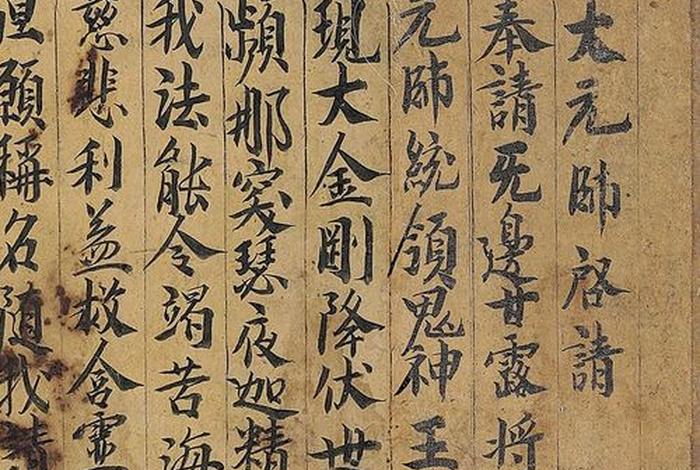 大元帥啓請
奉請旡邊甘露将
元帥統領鬼神王
現大金剛降伏世
頻那窔瑟夜迦精
我法能令竭苦海
慈悲利益救含霊
但願稱名随我請